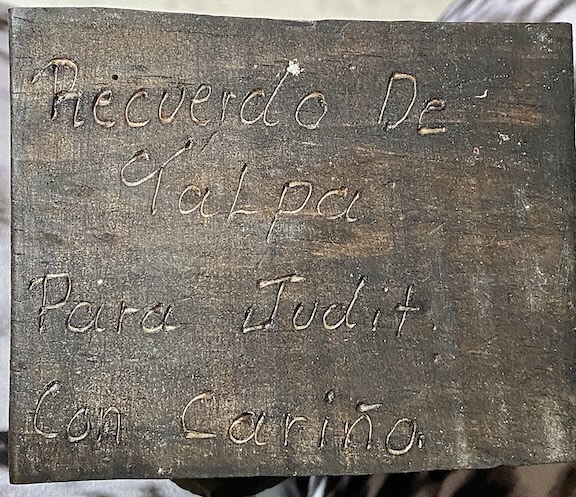 Recuerdo De
Talpa
Para Judit
Con Cariño.